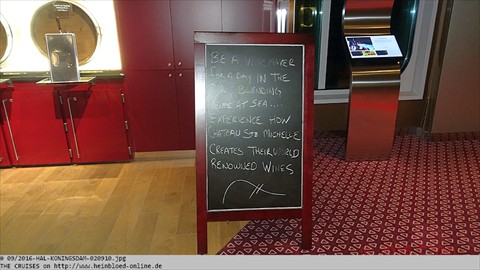 BE A WINEMAKER
FOR A DAY IN THE
BLENDING
AT SEA....
EXPERIENCE HOW
CHATEAU STE MICHELLE
CREATES THEIR WORLD
RENOWNED WINES
@ 09/2016-HAL-KONINGSDAM-020910.jpg
THE CRUISES on http://www.heinbloed-online.de